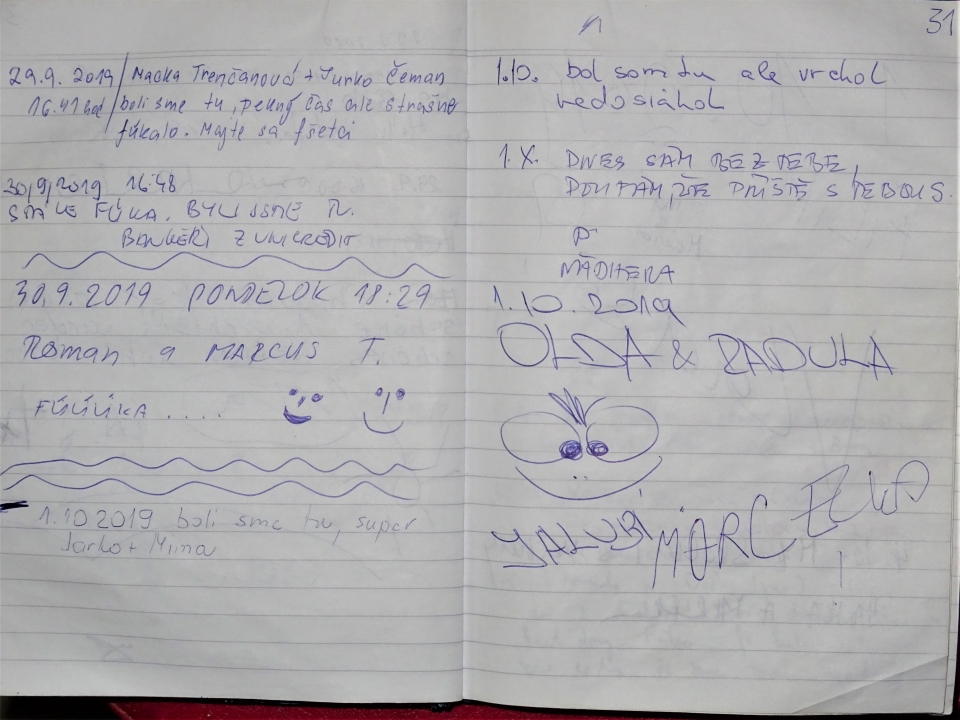 29.9. 2019 / Macka Trenčanová + Junko Čeman
16.41 hod / boli sme tu, pekný čas ale strašne
fúkalo. Majte sa fšetci
30/9/2019 16:48
STÁLE FÚKA. BYLI JSME TU.
BANKÉŘI Z UNICREDIT
30.9.2019 PONDELOK 18:29
Roman a MARCUS T.
FÚÚÚKA .....
1.10 2019 boli sme tu, super
Jarko + Mima
31
1.10. bol som tu ale vrchol
nedosiahol
1.X. DNES SÁM BEZ TEBE,
DOUFÁM, ŽE PŘÍŠTĚ S TEBOU S.
P
MÁDHERA
1.10.2019
OLDA & RADULA
YALUBI MARCELKA